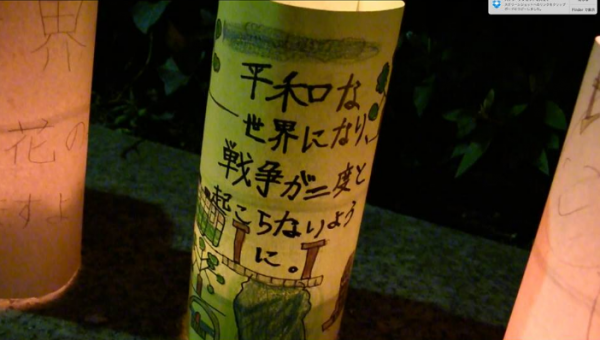 平和な
世界になり、
戦争が二度と
起こらないよう
に。
界
花の
すよ